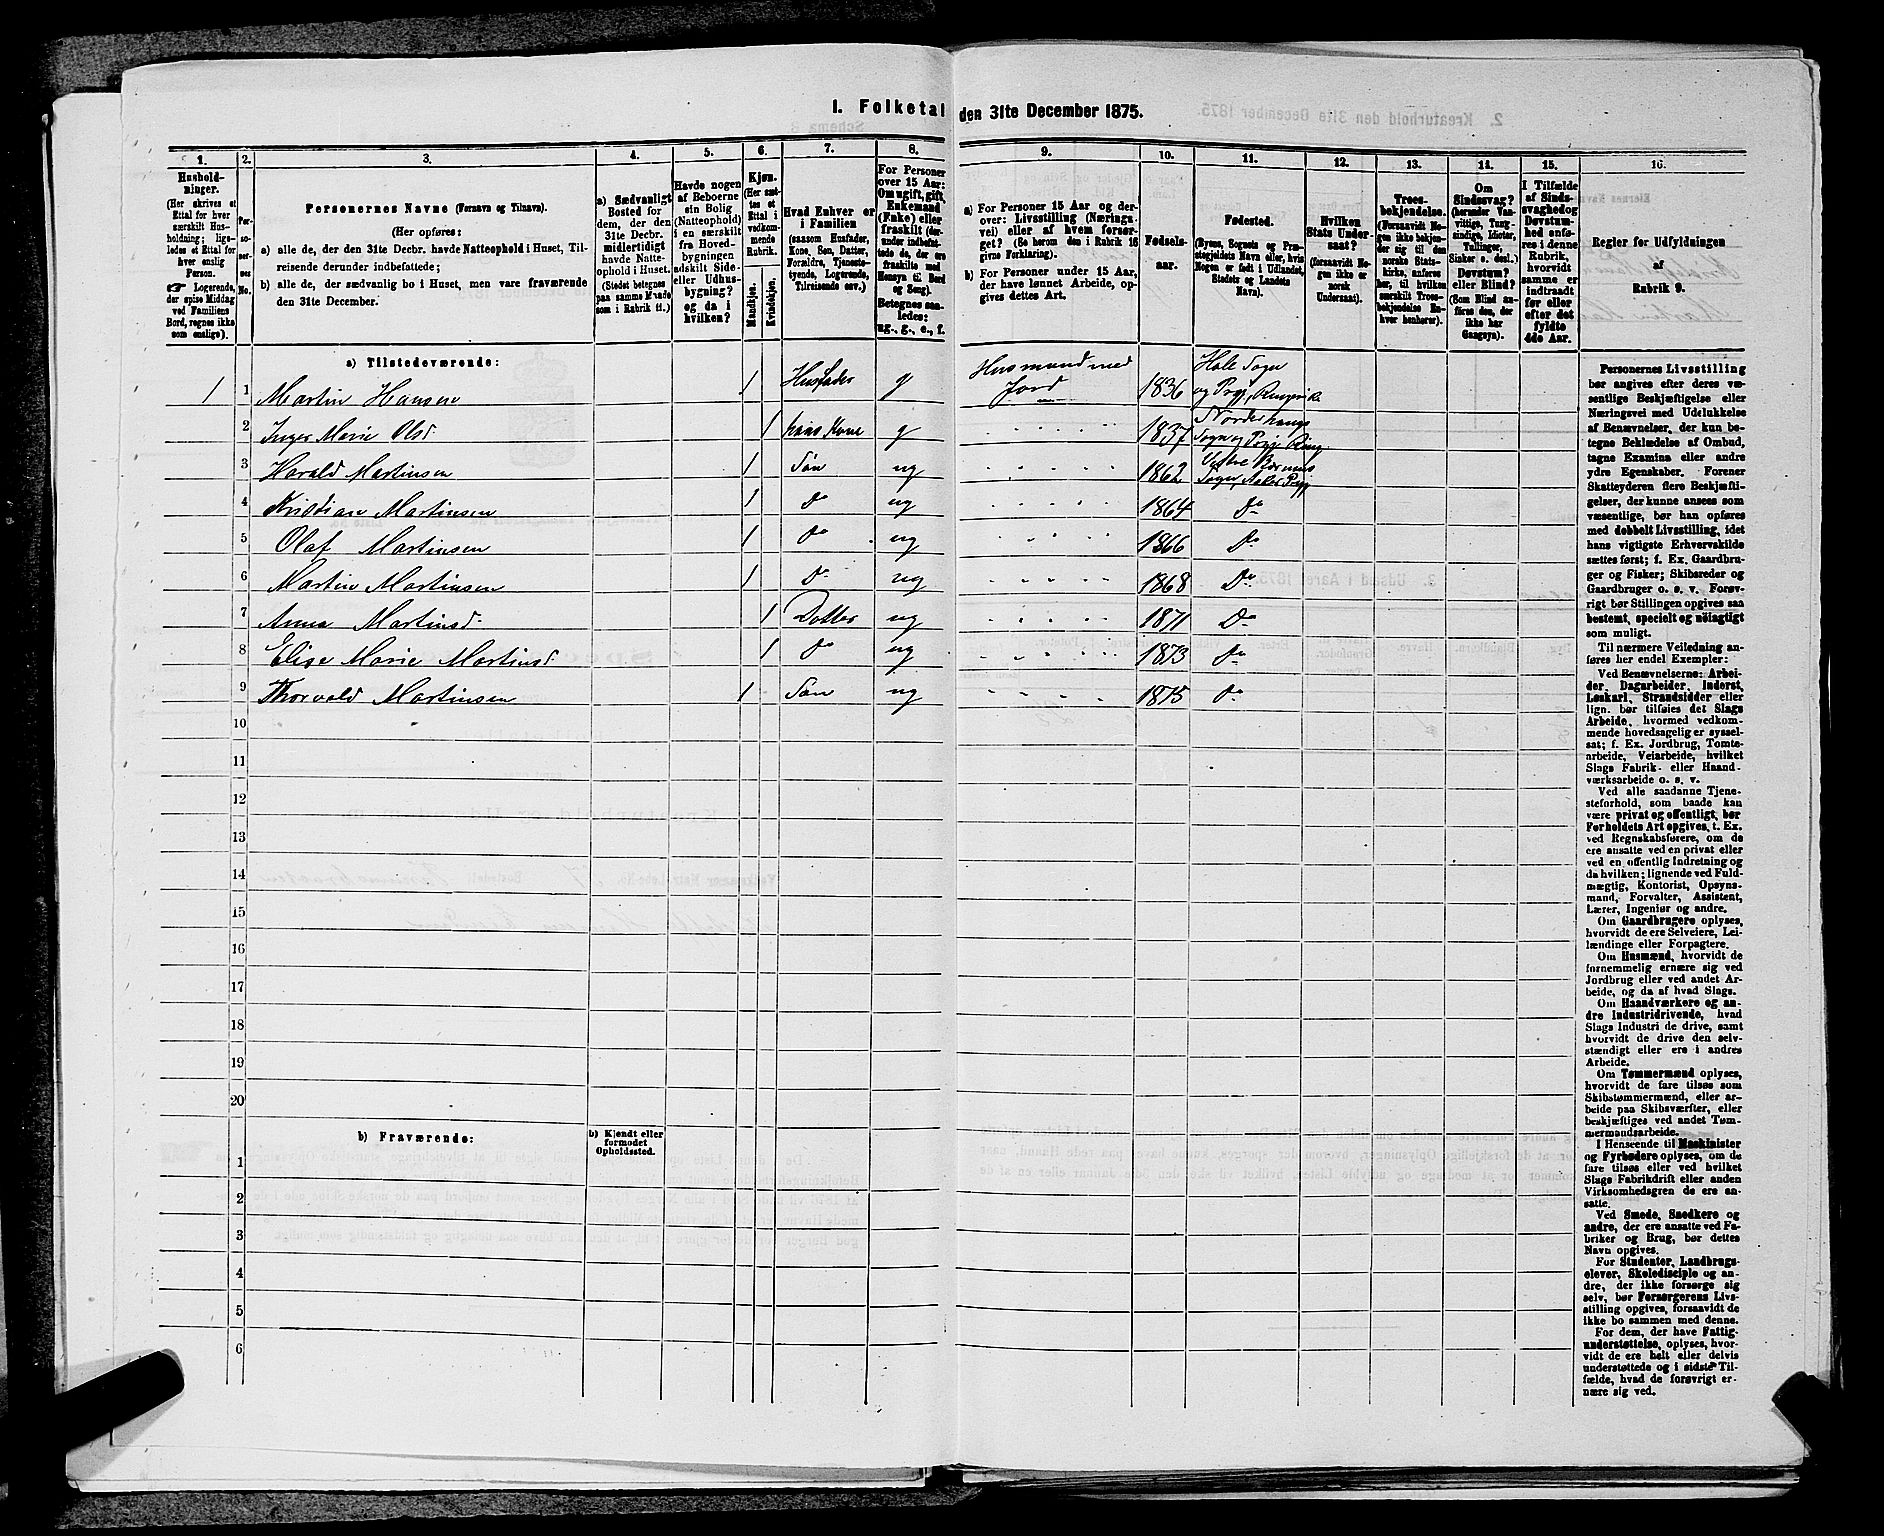 I. Folketal den 31te December 1875.
1. 2. 3. 4. 5. 6. 7. 8. 9. 10. 11. 12. 13. 14. 15. 16.
Hushold-
ninger.
(Her skrives et
Ettal for hver
særskilt Hus-
holdning; lige-
ledes et Ettal for
hver enslig
Person.
☛ Logerende,
der spise Middag
ved Familiens
Bord, regnes ikke
som enslige).
Per-
soner-
nes
No.
Personernes Navne (Fornavn og Tilnavn).
(Her opføres:
a) alle de, der den 31te Decbr. havde Natteophold i Huset, Til-
reisende derunder indbefattede;
b) alle de, der sædvanlig bo i Huset, men vare fraværende
den 31te December.
a) Sædvanligt
Bosted for
dem, der den
31te Decbr.
midlertidigt
havde Natte-
ophold i Huset.
(Stedet betegnes
paa samme Maade
som i Rubrik 11.)
Havde nogen
af Beboerne
sin Bolig
(Natteophold)
i en særskilt
fra Hoved-
bygningen
adskilt Side-
eller Udhus-
bygning?
og da i
hvilken?
Kjøn.
(Her sæt-
tes et
Ettal i
vedkom-
mende
Rubrik.
Mandkjøn.
Kvindekjøn.
Hvad Enhver er
i Familien
(saasom Husfader,
Kone, Søn, Datter,
Forældre, Tjeneste-
tyende, Logerende,
Tilreisende osv.)
For Personer
over 15 Aar:
Om ugift, gift,
Enkemand
(Enke) eller
fraskilt (der-
under indbefat-
tede de, der ere
fraskilte med
Hensyn til Bord
og Seng).
Betegnes saa-
ledes:
ug., g., e., f.
a) For Personer 15 Aar og der-
over: Livsstilling (Nærings-
vei) eller af hvem forsør-
get? (Se herom den i Rubrik 16
givne Forklaring).
b) For Personer under 15 Aar,
der have lønnet Arbeide, op-
gives dettes Art.
Fødsels-
aar.
Fødested.
(Byens, Sognets og Præ-
stegjeldets Navn eller, hvis
Nogen er født i Udlandet,
Stedets og Landets
Navn).
Hvilken
Stats Under-
saat?
(forsaavidt No-
gen ikke er
norsk
Undersaat).
Troes-
bekjendelse.
(Forsaavidt No-
gen ikke bekjen-
der sig til den
norske Stats-
kirke, anføres
her, til hvilken
særskilt Troes-
bekjendelse En-
hver henhører).
Om
Sindssvag?
(herunder Van-
vittige, Tung-
sindige, Idioter,
Tullinger,
Sinker o. desl.)
Døvstum?
eller Blind?
(Som Blind an-
føres den, der
ikke har
Gangsyn).
I Tilfælde
af Sinds-
svaghed og
Døvstum-
hed anfø-
res i denne
Rubrik,
hvorvidt
samme er
indtraadt
før eller
efter det
fyldte
4de Aar.
Regler for Udfyldningen
af
Rubrik 9.
a) Tilstedeværende:
1 1 Martin Hansen 1 Husfader g Husmand med Jord 1836 Hole Sogn og Prgj, Ringerike
2 Inger Marie Olsd. 1 hans Kone g 1837 Norderhougs Sogn og Prgj Ring
3 Harald Martinsen 1 Søn ug " " " " 1862 Vestre Bærums Sogn, Asker Prgj
4 Kristian Martinsen 1 do ug " " " 1864 Do
5 Olaf Martinsen 1 do ug " " " " 1866 Do
6 Martin Martinsen 1 Do ug " " " " 1868 Do
7 Anna Martinsd. 1 Datter ug " " " " 1871 Do
8 Elise Marie Martinsd. 1 do ug " " " " 1873 do
9 Thorvald Martinsen 1 Søn ug " " " " 1875 do
10
11
12
13
14
15
16
17
18
19
20
b) Fraværende:
b) Kjendt eller
formodet
Opholdssted.
1
2
3
4
5
6
Personernes Livsstilling
bør angives efter deres væ-
sentlige Beskjæftigelse eller
Næringsvei med Udelukkelse
af Benævnelser, der kun be-
tegne Beklædelse af Ombud,
tagne Examina eller andre
ydre Egenskaber. Forener
Skatteyderen flere Beskjæfti-
gelser, der kunne ansees som
væsentlige, bør han opføres
med dobbelt Livsstilling, idet
hans vigtigste Erhvervskilde
sættes først; f. Ex. Gaardbru-
ger og Fisker; Skibsreder og
Gaardbruger o. s. v. Forøv-
rigt bør Stillingen opgives saa
bestemt, specielt og nøiagtigt
som muligt.
Til nærmere Veiledning an-
føres her endel Exempler:
Ved Benævnelserne: Arbei-
der, Dagarbeider, Inderst,
Løskarl, Strandsidder eller
lign. bør tilføies det Slags
Arbeide, hvormed vedkom-
mende hovedsagelig er syssel-
sat; f. Ex. Jordbrug, Tomte-
arbeide, Veiarbeide, hvilket
Slags Fabrik- eller Haand-
værksarbeide o. s. v.
Ved alle saadanne Tjene-
steforhold, som baade kan
være privat og offentligt, bør
Forholdets Art opgives, t. Ex.
ved Regnskabsførere, om de
ere ansatte ved en privat eller
ved en offentlig Indretning og
da hvilken; lignende ved Fuld-
mægtig, Kontorist, Opsyns-
mand, Forvalter, Assistent,
Lærer, Ingeniør og andre.
Om Gaardbrugere oplyses,
hvorvidt de ere Selveiere, Lei-
lændinge eller Forpagtere.
Om Husmænd, hvorvidt de
fornemmelig ernære sig ved
Jordbrug eller ved andet Ar-
beide, og da af hvad Slags.
Om Haandværkere og an-
dre Industridrivende, hvad
Slags Industri de drive, samt
hvorvidt de drive den selv-
stændigt eller ere i andres
Arbeide.
Om Tømmermænd oplyses,
hvorvidt de fare tilsøs som
Skibstømmermænd, eller ar-
beide paa Skibsværfter, eller
beskjæftiges ved andet Tøm-
mermandsarbeide.
I Henseende til Maskinister
og Fyrbødere oplyses, om de
fare tilsøs eller ved hvilket
Slags Fabrikdrift eller anden
Virksomhedsgren de ere an-
satte.
Ved Smede, Snedkere og
andre, der ere ansatte ved Fa-
briker og Brug, bør dettes
Navn opgives.
For Studenter, Landbrugs-
elever, Skoledisciple og an-
dre, der ikke forsørge sig
selv, bør Forsørgerens Livs-
stilling opgives, forsaavidt de
ikke bo sammen med denne.
For dem, der have Fattig-
understøttelse, oplyses, hvor-
vidt de ere helt eller delvis
understøttede og i sidste Til-
fælde, hvad de forøvrigt er-
nære sig ved.